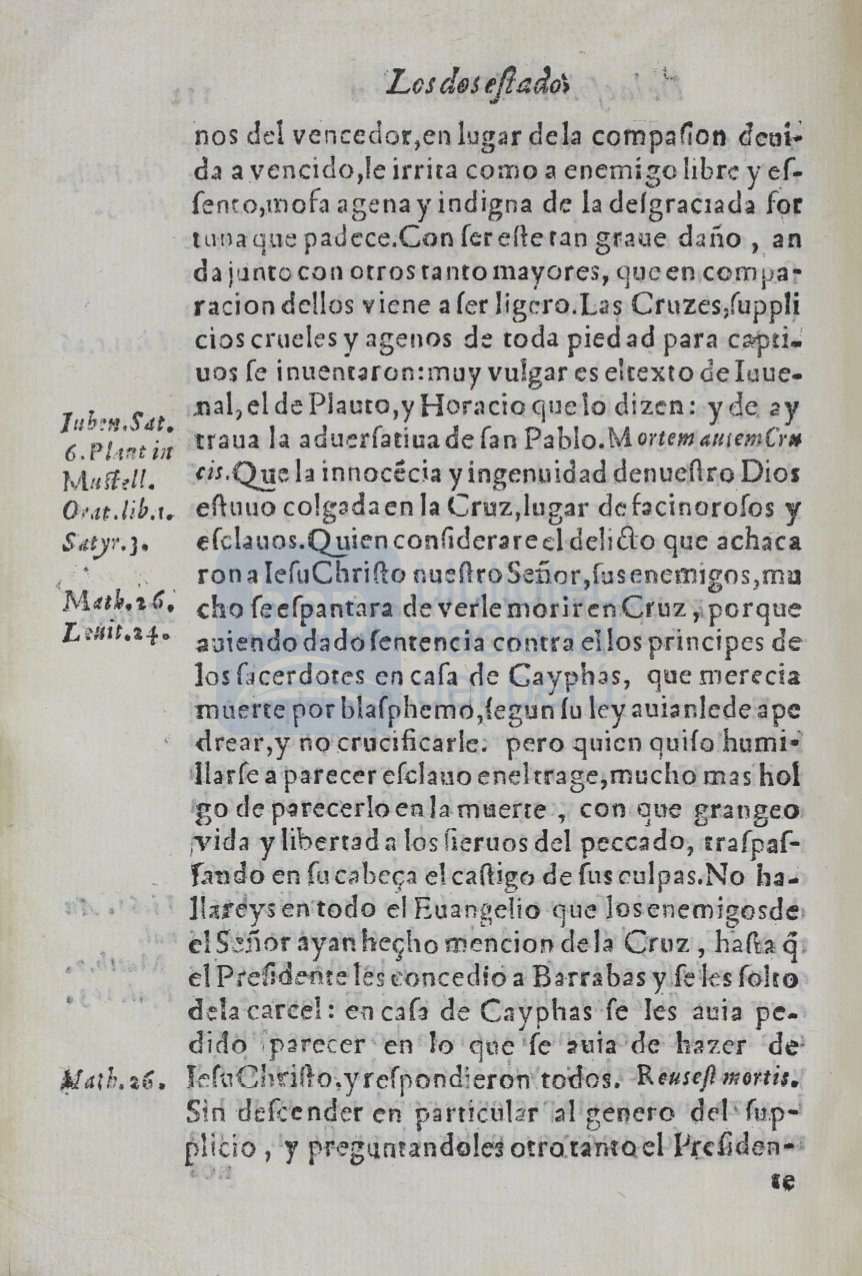 Los dos estados
nos del vencedor,en lugar dela compaſion deui-
da a vencido,le irrita como a enemigo libre y eſ-
ſento,mofa agena y indigna de la deſgraciada for
tuna que padece.Con ſer eſte tan graue daño , an
da junto con otros tanto mayores, que en compa-
racion dellos viene a ſer ligero.Las Cruzes,ſuppli
cios crueles y agenos de toda piedad para capti-
uos ſe inuentaron:muy vulgar es el texto de Iuue-
nal,el de Plauto,y Horacio que lo dizen: y de ay
traua la aduerſatiua de ſan Pablo.Mortem autem Cru
cis.Que la innocẽcia y ingenuidad denueſtro Dios
eſtuuo colgada en la Cruz,lugar de facinoroſos y
eſclauos.Quien conſiderare el delicto que achaca
ron a IeſuChriſto nueſtro Señor,ſus enemigos,mu
cho ſe eſpantara de verle morir en Cruz , porque
auiendo dado ſentencia contra el los principes de
los ſacerdotes en caſa de Cayphas, que merecia
muerte por blaſphemo,ſegun ſu ley auianle de ape
drear,y no crucificarle. pero quien quiſo humi-
llarſe a parecer eſclauo enel trage,mucho mas hol
go de parecerlo en la muerte , con que grangeo
vida y libertad a los ſieruos del peccado, traſpaſ-
ſando en ſu cabeça el caſtigo de ſus culpas.No ha-
llareys en todo el Euangelio que los enemigos de
el Señor ayan hecho mencion dela Cruz , haſta q̃
el Preſidente les concedio a Barrabas y ſe les ſolto
dela carcel: en caſa de Cayphas ſe les auia pe-
dido parecer en lo que ſe auia de hazer de
IeſuChriſto,y reſpondieron todos. Reus eſt mortis.
Sin deſcender en particular al genero del ſup-
plicio , y preguntandoles otro tanto el Preſiden-
te
Iuben.Sat.
6.Plaut in
Muſtell.
Orat.lib.1.
Satyr.3.
Math.26.
Leuit.24.
Math.26.